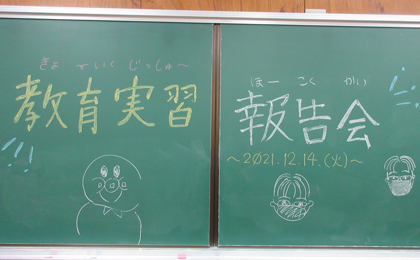 きょ いく じっしゅ～
教育実習
ほー こく かい
報告会
～2021.12.14.(火)～